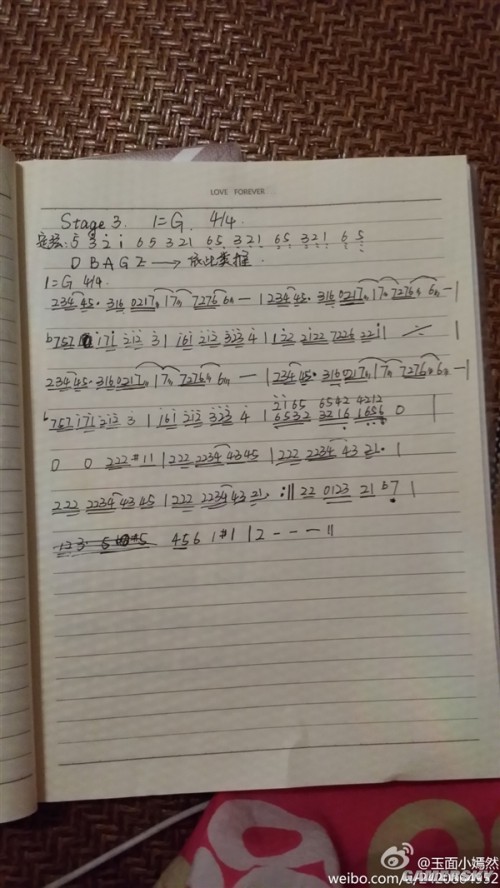 LOVE FOREVER
Stage 3. 1=G. 4/4.
定弦: 5 3 2 1 6 5 3 2 1 6 5 3 2 1 6 5 3 2 1 6 5
D B A G E → 依此类推.
1=G 4/4.
2 3 4 4 5 · 3 1 6 0 2 1 7 | 1 7 7 2 7 6 6 — | 2 3 4 4 5 · 3 1 6 0 2 1 7 | 1 7 7 2 7 6 6 — |
b7 5 7 1 7 1 2 1 2 3 | 1 6 1 2 1 2 3 2 3 4 | 1 2 2 2 1 2 2 7 2 2 6 2 2 1 |
2 3 4 4 5 · 3 1 6 0 2 1 7 | 1 7 7 2 7 6 6 — | 2 3 4 4 5 · 3 1 6 0 2 1 7 | 1 7 7 2 7 6 6 — |
2 1 6 5 6 5 4 2 4 2 1 2
b7 5 7 1 7 1 2 1 2 3 | 1 6 1 2 1 2 3 2 3 4 | 6 5 3 2 3 2 1 6 1 6 5 6 0 |
0 0 2 2 2 #1 1 | 2 2 2 2 2 3 4 4 3 4 5 | 2 2 2 2 2 3 4 4 3 2 1 · |
2 2 2 2 2 3 4 4 3 4 5 | 2 2 2 2 2 3 4 4 3 2 1 :|| 2 2 0 1 2 3 2 1 b7 |
4 5 6 1 #1 | 2 - - - ||
@玉面小嫣然
GAMERSKY